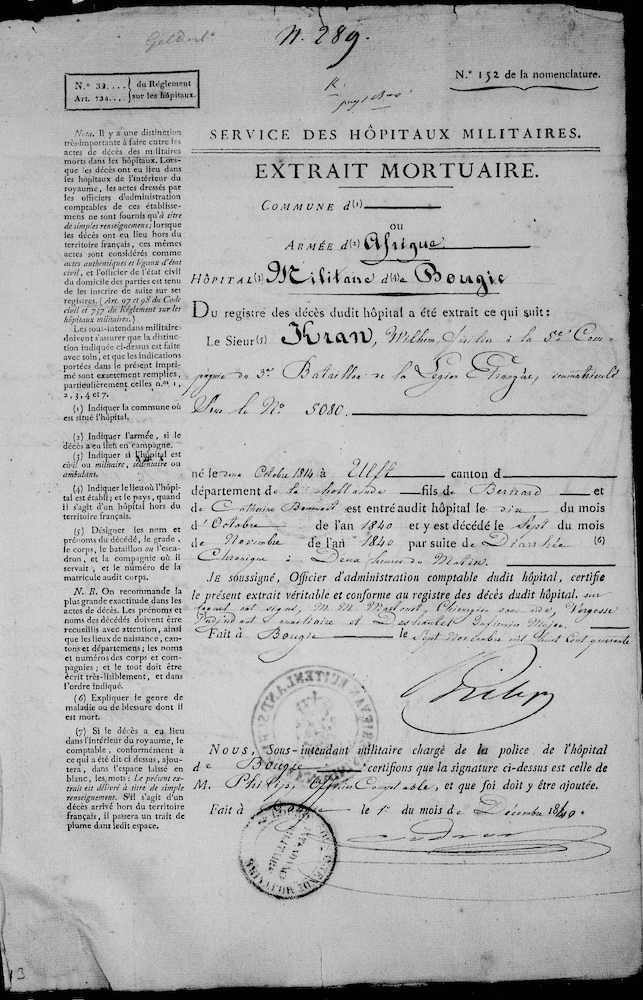 N. 289.
N.° 32.... du Réglement
Art. 734... sur les hôpitaux.
N.° 152 de la nomenclature.
SERVICE DES HÔPITAUX MILITAIRES.
EXTRAIT MORTUAIRE.
COMMUNE d(1)
OU
ARMÉE d(2) Afrique
HÔPITAL(3) Militaire d(4)e Bougie
Du registre des décès dudit hôpital a été extrait ce qui suit:
Le Sieur(5) Kran, Wilhem, fusilier à la 5e Com-
pagnie du 3e Bataillon de la Légion Etrangère, immatriculé
Sous le N° 5080.
né le deux Octobre 1814 à Ulft canton d
département de la hollande fils de Bernard et
de Catherine est entré audit hôpital le dix du mois
d'Octobre de l'an 1840 et y est décédé le Sept du mois
de Novembre de l'an 1840 par suite de Diarrhée (6)
Chronique à Deux heures du Matin.
JE soussigné, Officier d'administration comptable dudit hôpital, certifie
le présent extrait véritable et conforme au registre des décès dudit hôpital, sur
lequel ont signé, M. M. Chirurgien
(7) adjudant et
Fait à Bougie le Sept Novembre mil huit cent quarante
Philip
NOUS, Sous-intendant militaire chargé de la police de l'hôpital
de Bougie certifions que la signature ci-dessus est celle de
M. Philip, Officier Comptable, et que foi doit y être ajoutée.
Fait à le 1er du mois de Décembre 1840.
Nota. Il y a une distinction
très-importante à faire entre les
actes de décès des militaires
morts dans les hôpitaux. Lors-
que les décès ont eu lieu dans
les hôpitaux de l'intérieur du
royaume, les actes dressés par
les officiers d'administration
comptables de ces établisse-
mens ne sont fournis qu'à titre
de simples renseignemens; lorsque
les décès ont eu lieu hors du
territoire français, ces mêmes
actes sont considérés comme
actes authentiques et légaux d'état
civil, et l'officier de l'état civil
du domicile des parties est tenu
de les inscrire de suite sur ses
registres. (Art. 97 et 98 du Code
civil et 737 du Réglement sur les
hôpitaux militaires.)
Les sous-intendans militaires
doivent s'assurer que la distinc-
tion indiquée ci-dessus est faite
avec soin, et que les indications
portées dans le présent impri-
mé sont exactement remplies,
particulièrement celles n.os 1,
2, 3, 4 et 7.
(1) Indiquer la commune où
est situé l'hôpital.
(2) Indiquer l'armée, si le
décès a eu lieu en campagne.
(3) Indiquer si l'hôpital est
civil ou militaire, sédentaire ou
ambulant.
(4) Indiquer le lieu où l'hôpi-
tal est établi; et le pays, quand
il s'agit d'un hôpital hors du
territoire français.
(5) Désigner les nom et
prénoms du décédé, le grade,
le corps, le bataillon ou l'esca-
dron, et la compagnie où il
servait, et le numéro de la
matricule audit corps.
N. B. On recommande la
plus grande exactitude dans les
actes de décès. Les prénoms et
noms des décédés doivent être
recueillis avec attention, ainsi
que les lieux de naissance, can-
tons et départemens; les noms
et numéros des corps et com-
pagnies; et le tout doit être
écrit très-lisiblement, et dans
l'ordre indiqué.
(6) Expliquer le genre de
maladie ou de blessure dont il
est mort.
(7) Si le décès a eu lieu
dans l'intérieur du royaume, le
comptable, conformément à
ce qui a été dit ci dessus, ajou-
tera, dans l'espace laissé en
blanc, les mots: Le présent ex-
trait est délivré à titre de simple
renseignement. S'il s'agit d'un
décès arrivé hors du territoire
français, il passera un trait de
plume dans ledit espace.
13